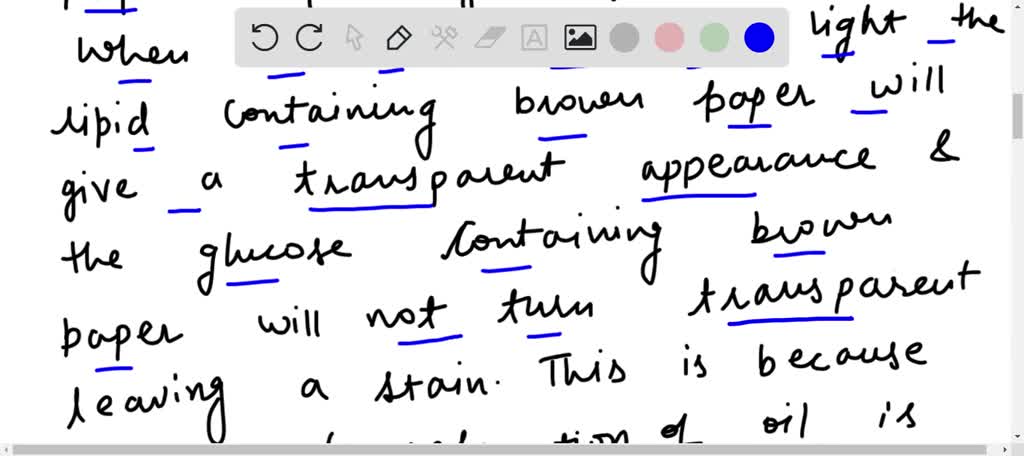 when light the
lipid containing brown paper will
give a transparent appearance &
the glucose containing brown
paper will not turn transparent
leaving a stain. This is because
of oil is